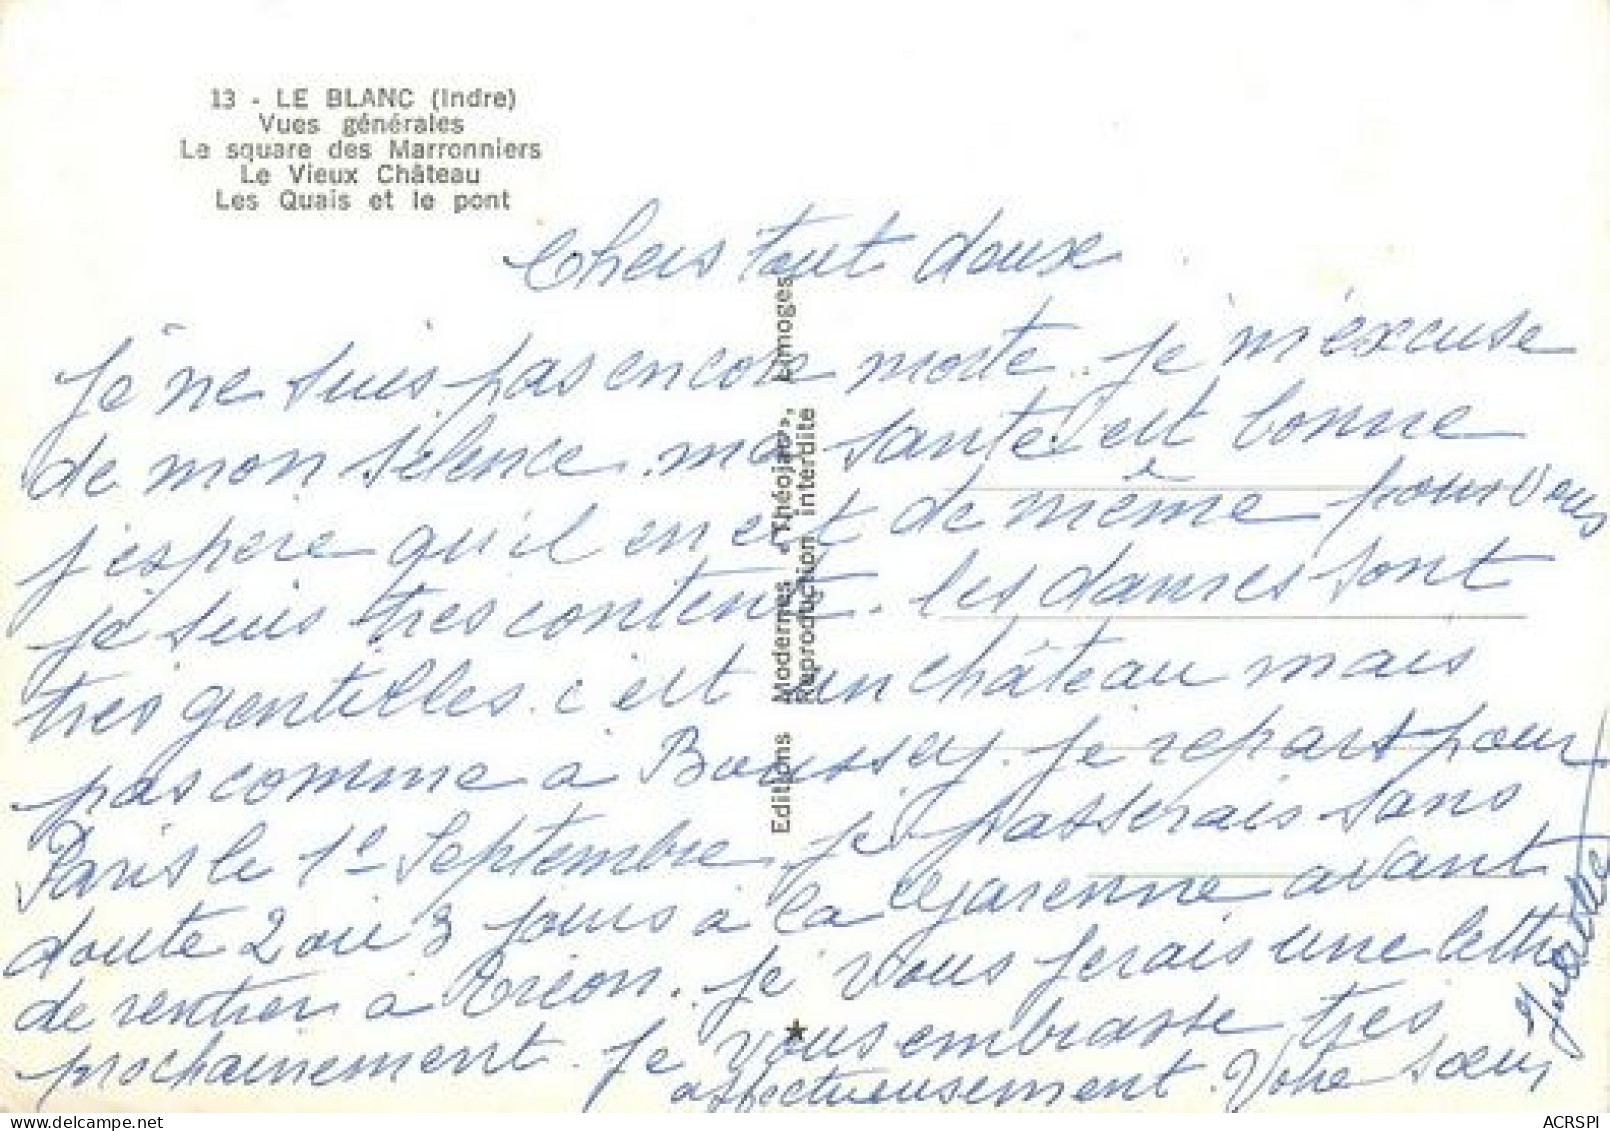 13 - LE BLANC (Indre)
Vues générales
Le square des Marronniers
Le Vieux Château
Les Quais et le pont
Chers tout doux
Je ne suis pas encore morte. je m'éxcuse
de mon silence. ma santé est bonne
j'espere qu'il en est de même pour vous
je suis tres contente. les dames sont
tres gentilles. c'est un château mais
pas comme a Boussey. je repart pour
Paris le 1e Septembre. je passerais sans
doute 2 ou 3 jours a la Garenne avant
de rentrer à. je vous ferais une lettre
prochainement. Je vous embrasse tres
affectueusement. Votre soeur
Editions Modernes «Théojac», Limoges
Reproduction interdite
ACRSPI